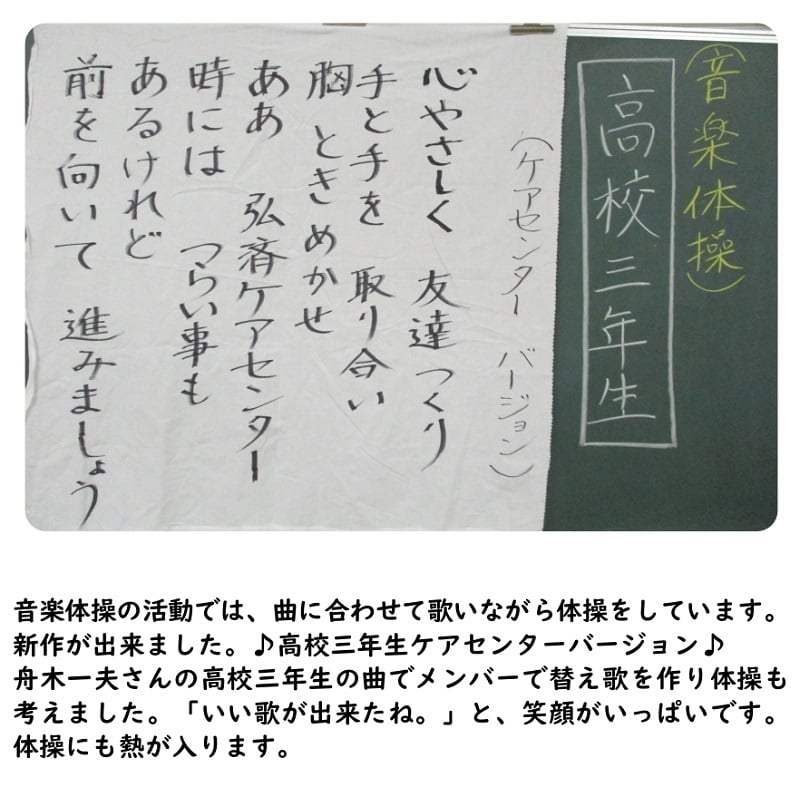 (音楽体操)
高校三年生
(ケアセンター バージョン)
心やさしく 友達つくり
手と手を 取り合い
胸ときめかせ
ああ 弘済ケアセンター
時には つらい事も
あるけれど
前を向いて 進みましょう
音楽体操の活動では、曲に合わせて歌いながら体操をしています。
新作が出来ました。♪高校三年生ケアセンターバージョン♪
舟木一夫さんの高校三年生の曲でメンバーで替え歌を作り体操も
考えました。「いい歌が出来たね。」と、笑顔がいっぱいです。
体操にも熱が入ります。